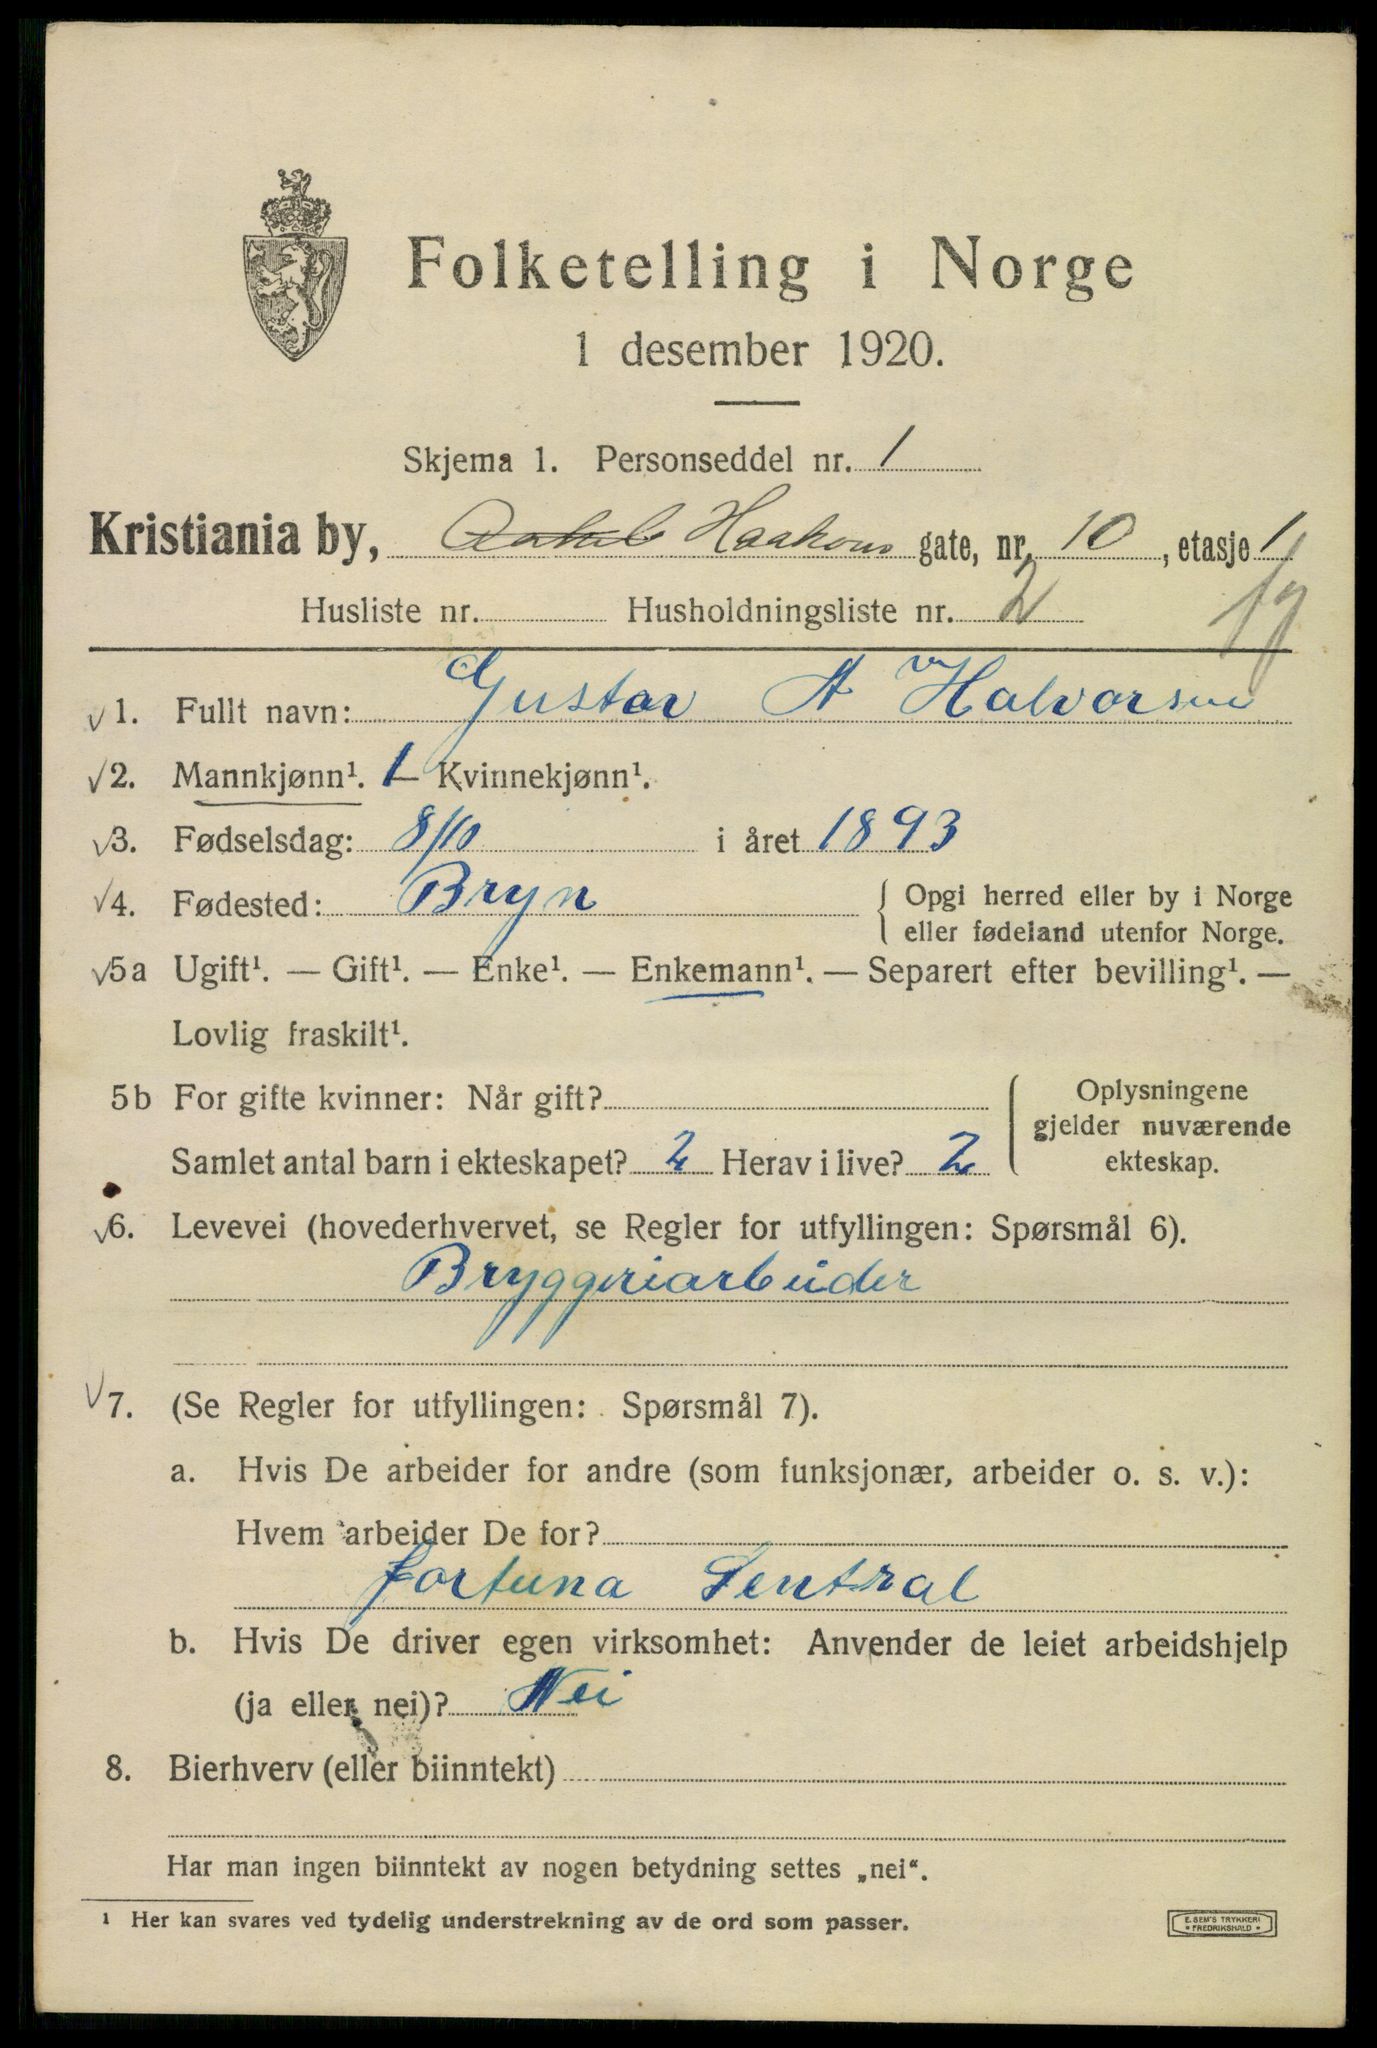 Folketelling i Norge
1 desember 1920.
Skjema 1. Personseddel nr. 1
Kristiania by, Haakons gate, nr. 10, etasje 1
Husliste nr. Husholdningsliste nr. 2
1. Fullt navn: Gustav A Halvorsen
2. Mannkjønn¹. 1 — Kvinnekjønn¹.
3. Fødselsdag: 8/10 i året 1893
4. Fødested: Bryn { Opgi herred eller by i Norge
eller fødeland utenfor Norge.
5a Ugift¹. — Gift¹. — Enke¹. — Enkemann¹. — Separert efter bevilling¹. —
Lovlig fraskilt¹.
5b For gifte kvinner: Når gift? Oplysningene
gjelder nuværende
Samlet antal barn i ekteskapet? 2 Herav i live? 2 ekteskap.
6. Levevei (hovederhvervet, se Regler for utfyllingen: Spørsmål 6).
Bryggeriarbeider
7. (Se Regler for utfyllingen: Spørsmål 7).
a. Hvis De arbeider for andre (som funksjonær, arbeider o. s. v.):
Hvem arbeider De for?
Fortuna Sentral
b. Hvis De driver egen virksomhet: Anvender de leiet arbeidshjelp
(ja eller nei)? Nei
8. Bierhverv (eller biinntekt)
Har man ingen biinntekt av nogen betydning settes „nei“.
¹ Her kan svares ved tydelig understrekning av de ord som passer.
E. SEM'S TRYKKERI
* FREDRIKSHALD *